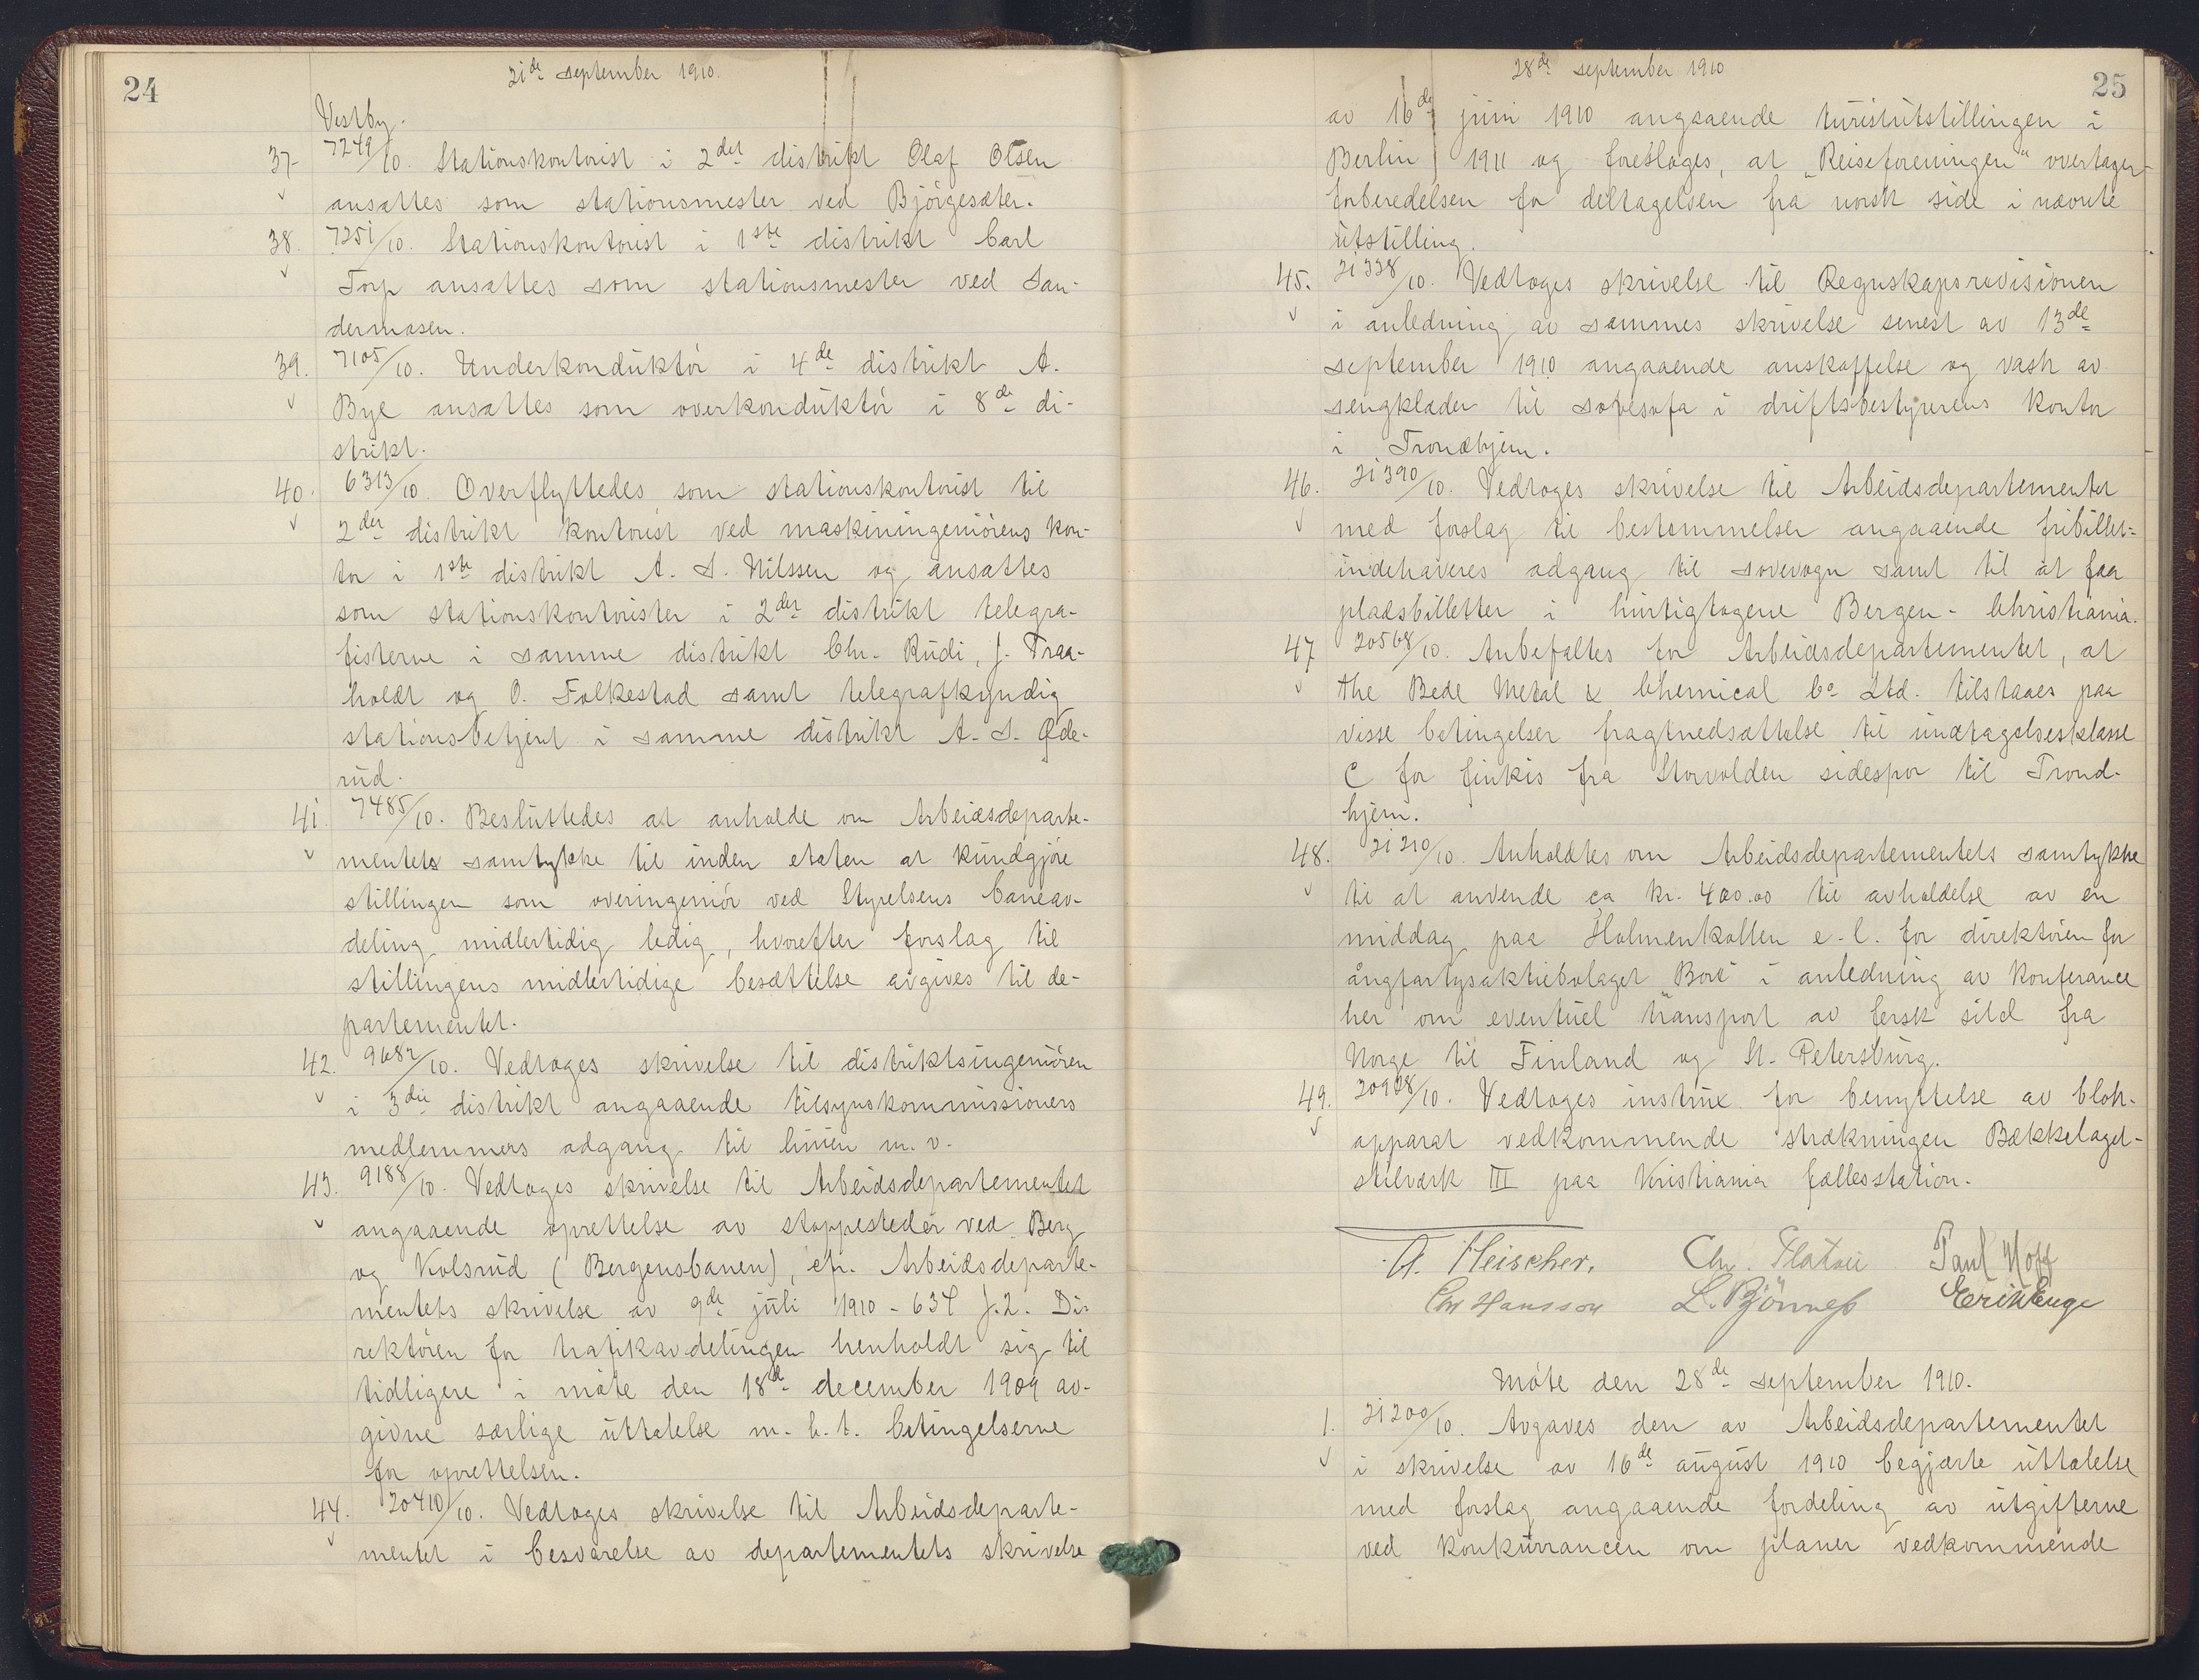 24
21de september 1910.
Vestby.
37. 7249/10. Stationskontorist i 2det distrikt Olaf Olsen
ansættes som stationsmester ved Bjørgesæter.
38. 7251/10. Stationskontorist i 1ste distrikt Carl
Torp ansættes som stationsmester ved San-
dermosen.
39. 7105/10. Underkonduktør i 4de distrikt A.
Bye ansættes som overkonduktør i 8de di-
strikt.
40. 6313/10. Overflyttedes som stationskontorist til
2det distrikt kontorist ved maskiningeniørens kon-
tor i 1ste distrikt A. S. Nilssen og ansættes
som stationskontorister i 2det distrikt telegra-
fisterne i samme distrikt Chr. Rudi, J. Traa-
holdt og O. Folkestad samt telegrafkyndig
stationsbetjent i samme distrikt A. S. Øde-
rud.
41. 7485/10. Besluttedes at anholde om Arbeidsdeparte-
mentets samtykke til inden etaten at kundgjøre
stillingen som overingeniør ved Styrelsens baneav-
deling midlertidig ledig, hvorefter forslag til
stillingens midlertidige besættelse avgives til de-
partementet.
42. 9682/10. Vedtoges skrivelse til distriktsingeniøren
i 3die distrikt angaaende tilsynskommissioners
medlemmers adgang til linien m. v.
43. 9188/10. Vedtoges skrivelse til Arbeidsdepartementet
angaaende oprettelse av stoppesteder ved Berg
og Kolsrud (Bergensbanen), cfr. Arbeidsdeparte-
mentets skrivelse av 9de juli 1910 - 634 J.2. Di-
rektøren for trafikavdelingen henholdt sig til
tidligere i møte den 18de december 1909 av-
givne særlige uttalelse m. h. t. betingelserne
for oprettelsen.
44. 20410/10. Vedtoges skrivelse til Arbeidsdeparte-
mentet i besvarelse av departementets skrivelse
28de september 1910
25
av 16de juni 1910 angaaende turistutstillingen i
Berlin 1911 og foreslages, at "Reiseforeningen" overtager
forberedelsen for deltagelsen fra norsk side i nævnte
utstilling.
45. 21338/10. Vedtoges skrivelse til Regnskapsrevisionen
i anledning av sammes skrivelse senest av 13de
september 1910 angaaende anskaffelse og vask av
sengklæder til sovesofa i driftsbestyrerens kontor
i Trondhjem.
46. 21390/10. Vedtoges skrivelse til Arbeidsdepartementet
med forslag til bestemmelser angaaende fribillet-
indehaveres adgang til sovevogn samt til at faa
pladsbilletter i hurtigtogene Bergen - Christiania.
47. 20568/10. Anbefaltes for Arbeidsdepartementet, at
the Bede Metal & Chemical Co Ltd. tilstaaes paa
visse betingelser fragtnedsættelse til undtagelsesklasse
C for finkis fra Storvolden sidespor til Trond-
hjem.
48. 21210/10. Anholdtes om Arbeidsdepartementets samtykke
til at anvende ca kr. 400.00 til avholdelse av en
middag paa Holmenkollen e. l. for direktøren for
ångfartygsaktiebolaget "Bore" i anledning av konferance
her om eventuel transport av fersk sild fra
Norge til Finland og St. Petersburg.
49. 20928/10. Vedtoges instrux for benyttelse av blok-
apparat vedkommende strækningen Bækkelaget-
stilværk III paa Kristiania fællesstation.
A. Fleischer. Chr. Platou Paul Hoff
Chr Hansson L. Bjønness Erik Enge
Møte den 28de september 1910.
1. 21200/10. Avgaves den av Arbeidsdepartementet
i skrivelse av 16de august 1910 begjærte uttalelse
med forslag angaaende fordeling av utgifterne
ved konkurrancen om planer vedkommende